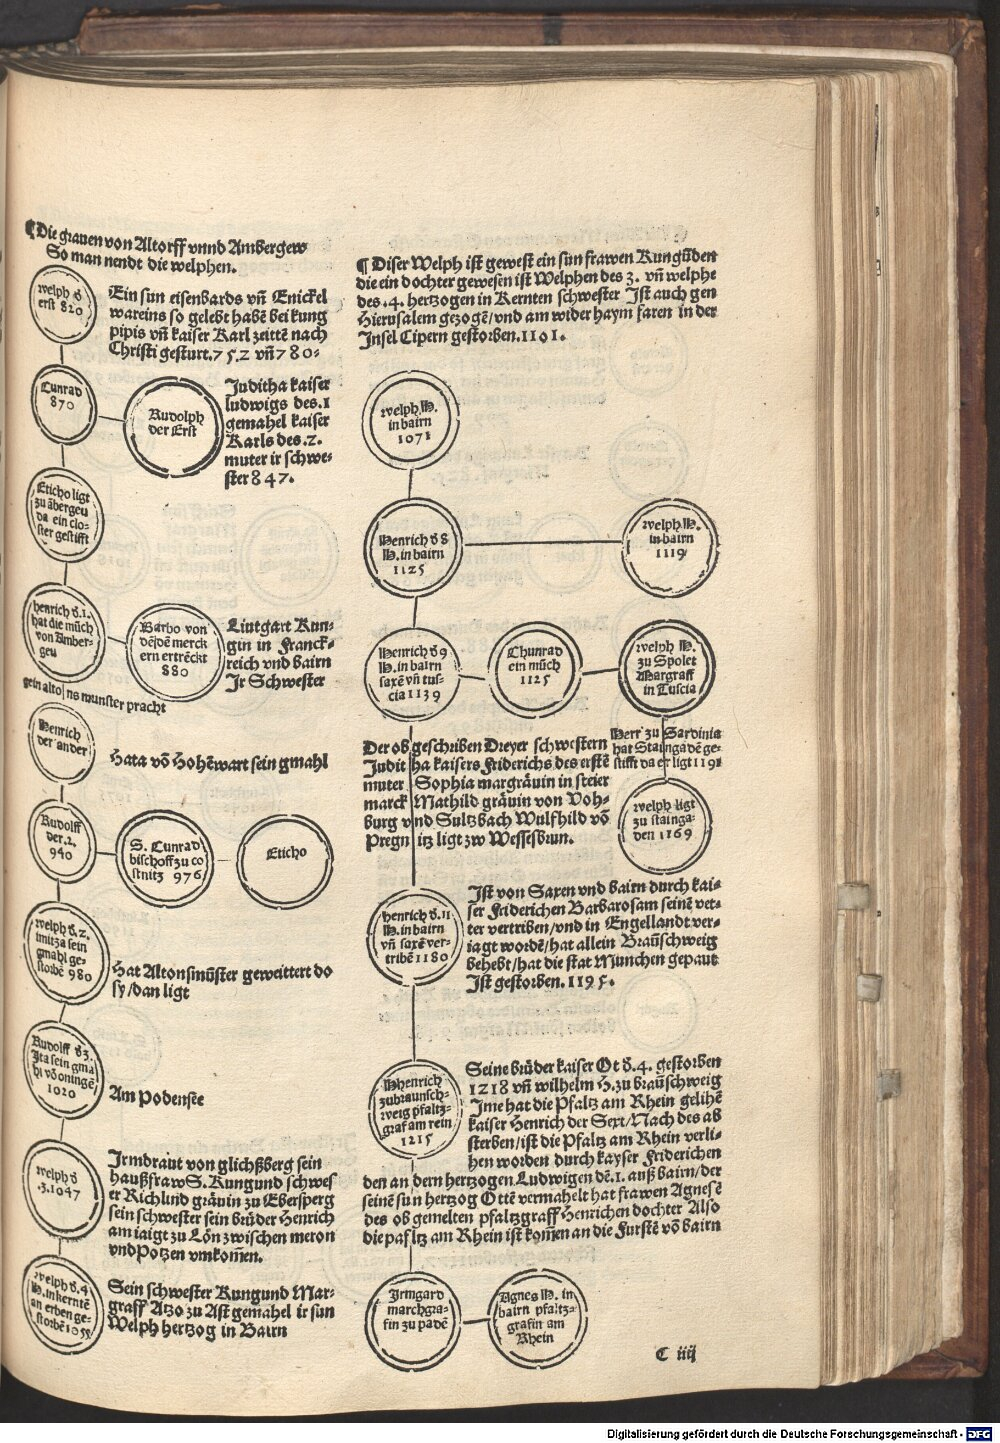 ¶Die grauen von Altorff vnnd Ambergew
So man nendt die welphen.
welph ď
erst 820
Ein sun eisenbards vñ Enickel
wareins so gelebt habē bei kung
pipis vñ kaiser Karl zeittē nach
Christi gesturt. 752 vñ 780.
Cunrad
870
Rudolph
der Erst
Juditha kaiser
ludwigs des .1
gemahel kaiser
Karls des .2.
muter ir schwe-
ster 847.
Eticho ligt
zu ābergeu
da ein clo-
ster gestifft
henrich ď .1.
hat die mūch
von Amber-
geu
Barbo von
dē merck
ern ertrēckt
880
Liutgart Kun-
gin in Franck-
reich vnd bairn
Jr Schwester
sein alto ns munster pracht
Henrich
der ander
Hata vō Hohēwart sein gmahl
Rudolff
der .2.
940
S. Cunrad
bischoff zu co
stnitz 976
Eticho
welph ď .2.
imitza sein
gmahl ge-
storbē 980
Hat Altonsmūster geweittert do
sy/dan ligt
Rudolff ď 3.
Jta sein gma
hl vō oningē
1020
Am Podensee
welph ď
.3. 1047
Irmdraut von glichßberg sein
haußfraw S. Kungund schwes
er Richlind gräuin zu Ebersperg
sein schwester sein brůder Henrich
am iaigt zu Lōn zwischen meron
vnd Potzen vmkomēn.
welph ď .4
H. in kerntē
an erben ge-
storbē 1055
Sein schwester Kungund Mar-
graff Atzo zu Ast gemahel ir sun
Welph hertzog in Bairn
¶ Diser Welph ist gewest ein sun frawen Kungūden
die ein dochter gewesen ist Welphen des 3. vñ welphe
des .4. hertzogen in Kernten schwester Jst auch gen
Hierusalem gezogē/vnd am wider haym faren in der
Jnsel Cipern gestorben. 1101.
welph H.
in bairn
1071
Henrich ď 8
H. in bairn
1125
welph H.
in bairn
1119
Henrich ď 9
H. in bairn
saxē vñ tus-
cia 1139
Chunrad
ein mūch
1125
welph H.
zu Spolet
Margraff
in Tuscia
Der ob geschriben Dreyer schwestern
Judit ha kaisers Friderichs des erstē
muter Sophia margräuin in steier
marck Mathild gräuin von Voh-
burg vnd Sultzbach Wulfhild vō
Pregn itz ligt zw Wessesbrun.
Herr zu Sardinia
hat Staingadē ge-
stifft da er ligt 1191
welph ligt
zu stainga-
den 1169
henrich ď .11
H. in bairn
vñ saxē ver-
tribē 1180
Jst von Saxen vnd bairn durch kai-
ser Friderichen Barbarosam seinē vet-
ter vertriben/vnd in Engellandt ver-
iagt wordē/hat allein Braūschweig
behebt/hat die stat Munchen gepaut
Jst gestorben. 1195.
Hhenrich
zubraunsch-
weig pfaltz-
graf am rein
1215
Seine brůder kaiser Ot ď .4. gestorben
1218 vñ wilhelm H. zu braūschweig
Jme hat die Pfaltz am Rhein gelihē
kaiser Henrich der Sext/Nach des ab
sterben/ist die Pfaltz am Rhein verli-
hen worden durch kayser Friderichen
den an dern hertzogen Ludwigen dē .1. auß bairn/der
seinē sun hertzog Ottē vermahelt hat frawen Agnesē
des ob gemelten pfaltzgraff Henrichen dochter Also
die pafltz am Rhein ist komēn an die Furstē vō bairn
Irmgard
marchgra-
fin zu padē
Agnes H. in
bairn pfaltz-
grafin am
Rhein
C iiij
Digitalisierung gefördert durch die Deutsche Forschungsgemeinschaft - DFG